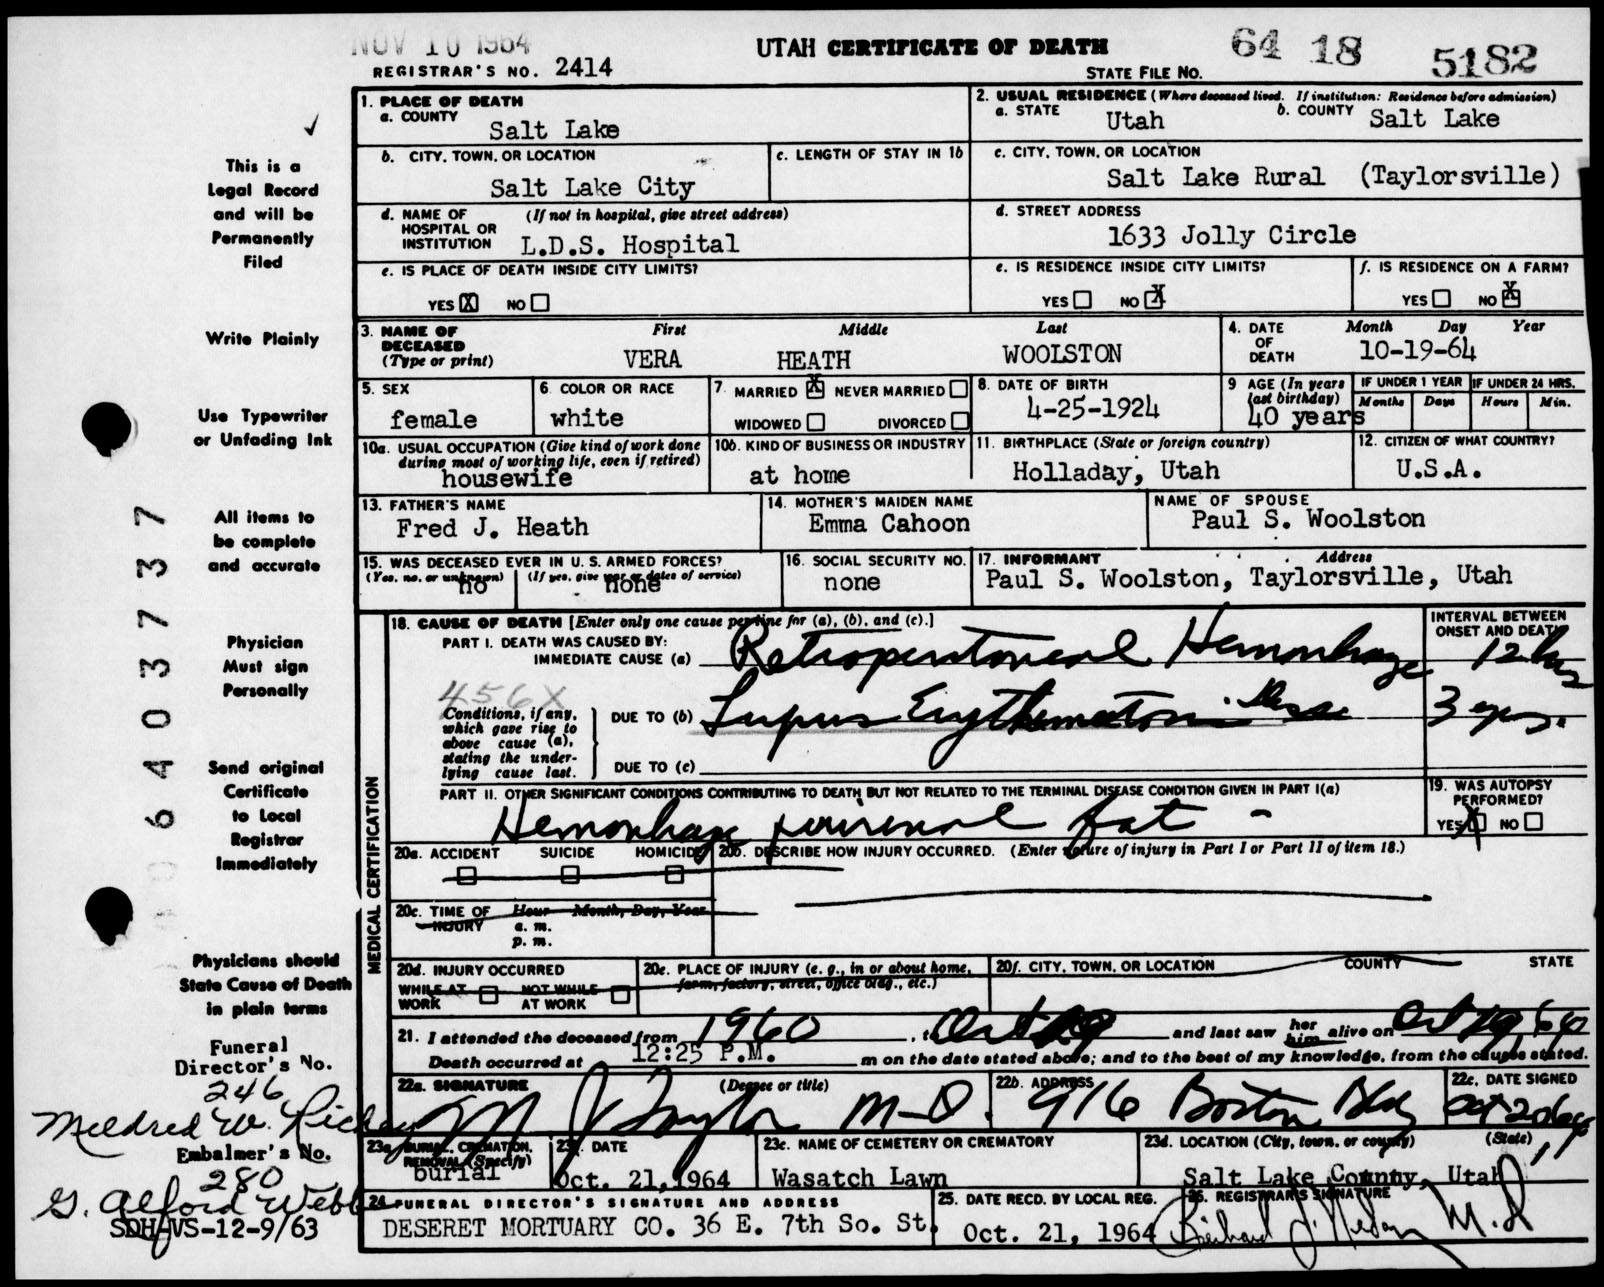 NOV 10 1964
UTAH CERTIFICATE OF DEATH
64 18 5182
REGISTRAR'S NO. 2414
STATE FILE NO.
This is a
Legal Record
and will be
Permanently
Filed
Write Plainly
Use Typewriter
or Unfading Ink
All items to
be complete
and accurate
Physician
Must sign
Personally
Send original
Certificate
to Local
Registrar
Immediately
Physicians should
State Cause of Death
in plain terms
Funeral
Director's No.
246
Mildred W. Richey
Embalmer's No.
280
G. Alford Webb
SDH-VS-12-9/63
6403737
1. PLACE OF DEATH
a. COUNTY
Salt Lake
2. USUAL RESIDENCE (Where deceased lived. If institution: Residence before admission)
a. STATE Utah b. COUNTY Salt Lake
b. CITY, TOWN, OR LOCATION
Salt Lake City
c. LENGTH OF STAY IN 1b
c. CITY, TOWN, OR LOCATION
Salt Lake Rural (Taylorsville)
d. NAME OF HOSPITAL OR INSTITUTION (If not in hospital, give street address)
L.D.S. Hospital
d. STREET ADDRESS
1633 Jolly Circle
e. IS PLACE OF DEATH INSIDE CITY LIMITS?
YES X NO
e. IS RESIDENCE INSIDE CITY LIMITS?
YES NO X
f. IS RESIDENCE ON A FARM?
YES NO X
3. NAME OF DECEASED (Type or print)
First Middle Last
VERA HEATH WOOLSTON
4. DATE OF DEATH
Month Day Year
10-19-64
5. SEX
female
6. COLOR OR RACE
white
7. MARRIED X NEVER MARRIED
WIDOWED DIVORCED
8. DATE OF BIRTH
4-25-1924
9 AGE (In years last birthday)
40 years
IF UNDER 1 YEAR
Months Days
IF UNDER 24 HRS.
Hours Min.
10a. USUAL OCCUPATION (Give kind of work done during most of working life, even if retired)
housewife
10b. KIND OF BUSINESS OR INDUSTRY
at home
11. BIRTHPLACE (State or foreign country)
Holladay, Utah
12. CITIZEN OF WHAT COUNTRY?
U.S.A.
13. FATHER'S NAME
Fred J. Heath
14. MOTHER'S MAIDEN NAME
Emma Cahoon
NAME OF SPOUSE
Paul S. Woolston
15. WAS DECEASED EVER IN U. S. ARMED FORCES?
(Yes, no, or unknown) (If yes, give war or dates of service)
no none
16. SOCIAL SECURITY NO.
none
17. INFORMANT Address
Paul S. Woolston, Taylorsville, Utah
MEDICAL CERTIFICATION
18. CAUSE OF DEATH [Enter only one cause per line for (a), (b), and (c).]
INTERVAL BETWEEN ONSET AND DEATH
PART I. DEATH WAS CAUSED BY:
IMMEDIATE CAUSE (a) Retroperitoneal Hemorrhage 12 hrs
456X
Conditions, if any, which gave rise to above cause (a), stating the underlying cause last.
DUE TO (b) Lupus Erythematosis Diss. 3 yrs.
DUE TO (c)
PART II. OTHER SIGNIFICANT CONDITIONS CONTRIBUTING TO DEATH BUT NOT RELATED TO THE TERMINAL DISEASE CONDITION GIVEN IN PART I(a)
Hemorrhage perirenal fat -
19. WAS AUTOPSY PERFORMED?
YES X NO
20a. ACCIDENT SUICIDE HOMICIDE
20b. DESCRIBE HOW INJURY OCCURRED. (Enter nature of injury in Part I or Part II of item 18.)
20c. TIME OF INJURY Hour Month, Day, Year
a. m.
p. m.
20d. INJURY OCCURRED
WHILE AT WORK NOT WHILE AT WORK
20e. PLACE OF INJURY (e. g., in or about home, farm, factory, street, office bldg., etc.)
20f. CITY, TOWN, OR LOCATION COUNTY STATE
21. I attended the deceased from 1960, to Oct 19 and last saw her him alive on Oct 19 64
Death occurred at 12:25 P.M. m on the date stated above; and to the best of my knowledge, from the causes stated.
22a. SIGNATURE (Degree or title)
Taylor M-D.
22b. ADDRESS
916 Boston Bldg
22c. DATE SIGNED
Oct 20 64
23a. BURIAL, CREMATION, REMOVAL (Specify)
burial
23b. DATE
Oct. 21, 1964
23c. NAME OF CEMETERY OR CREMATORY
Wasatch Lawn
23d. LOCATION (City, town, or county) (State)
Salt Lake County, Utah
24 FUNERAL DIRECTOR'S SIGNATURE AND ADDRESS
DESERET MORTUARY CO. 36 E. 7th So. St.
25. DATE RECD. BY LOCAL REG.
Oct. 21, 1964
26. REGISTRAR'S SIGNATURE
M.D